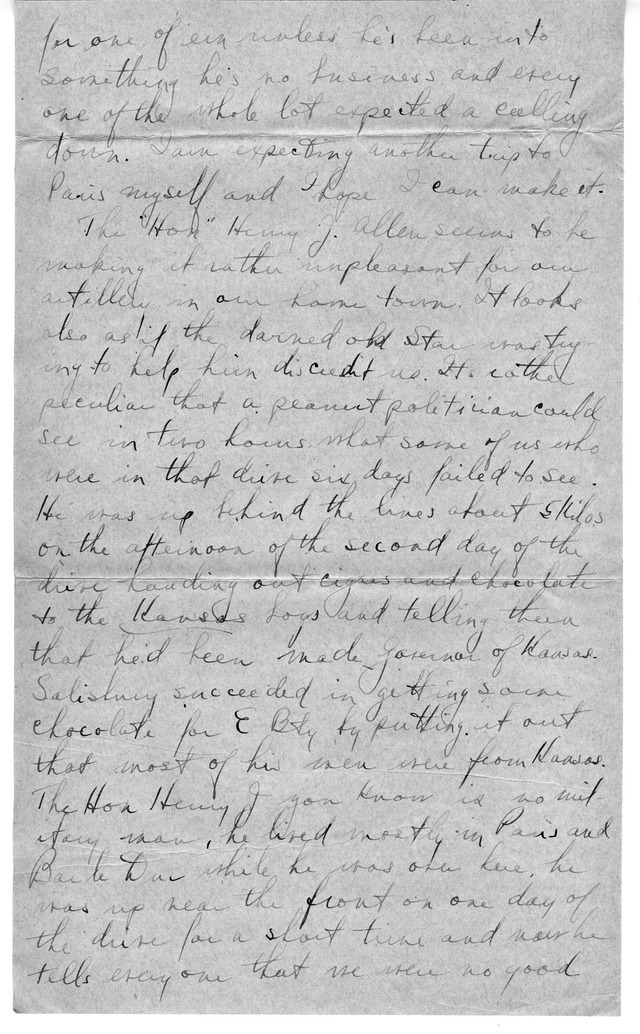 for one of em unless he's been into
something he's no business and every
one of the whole lot expected a calling
down. I am expecting another trip to
Paris myself and I hope I can make it.
The "Hon" Henry J. Allen seems to be
making it rather unpleasant for our
artillery in our home town. It looks
also as if the darned old Star was try-
ing to help him discredit us. Its rather
peculiar that a peanut politician could
see in two hours what some of us who
were in that drive six days failed to see.
He was up behind the lines about Kilos
on the afternoon of the second day of the
drive handing out cigars and chocolate
to the Kansas boys and telling them
that he'd been made Governor of Kansas.
Salisbury succeeded in getting some
chocolate for E Bty by putting it out
that most of his men were from Kansas.
The Hon Henry J you know is no mil-
itary man, he lived mostly in Paris and
Bar le Duc while he was over here, he
was up near the front on one day of
the drive for a short time and now he
tells everyone that we were no good